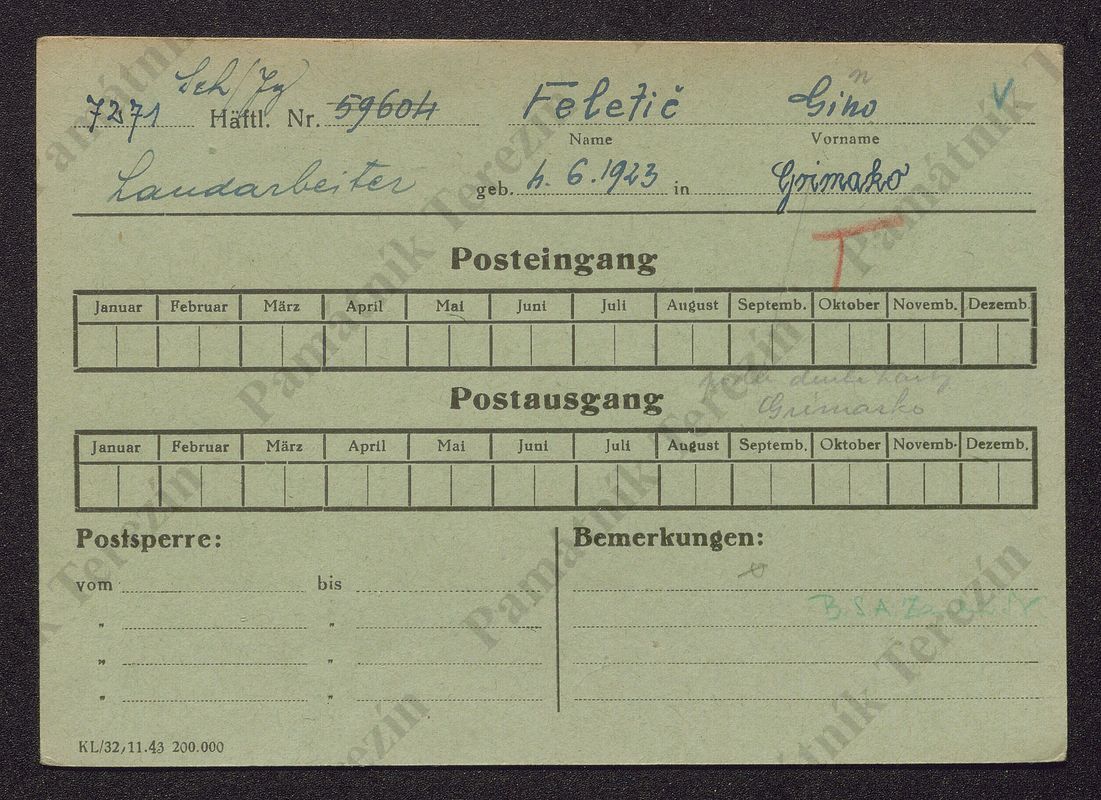 Sch/Jg
7271 Häftl. Nr. 59604 Feletič Gino
Name Vorname
Landarbeiter geb. 4. 6. 1923 in Grimako
T
Posteingang
Januar Februar März April Mai Juni Juli August Septemb. Oktober Novemb. Dezemb.
Grimarko
Postausgang
Januar Februar März April Mai Juni Juli August Septemb. Oktober Novemb. Dezemb.
Postsperre: Bemerkungen:
vom bis
" "
B.S.A.
" "
" "
KL/32, 11.43 200.000
Památník Terezín